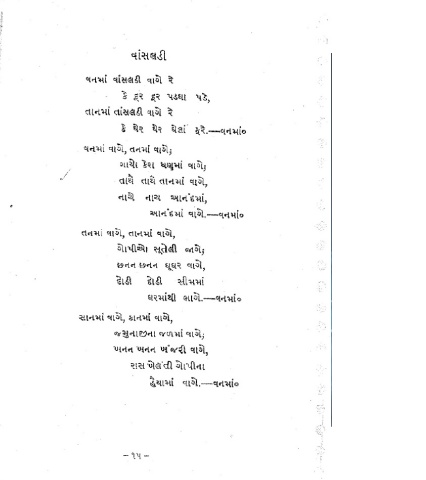 વાંસલડી
વનમાં વાંસલડી વાગે રે
કે દૂર દૂર પડઘા પડે,
તાનમાં તાંસલડી વાગે રે
કે ઘેર ઘેર ઘેલાં ફરે.—વનમાં૦
વનમાં વાગે, તનમાં વાગે;
ગાયો કેરા ધણમાં વાગે;
તાથૈ તાથૈ તાનમાં વાગે,
નાચે નાચ આનંદમાં,
આનંદમાં વાગે.—વનમાં૦
તનમાં વાગે, તાનમાં વાગે,
ગોપીઓ સૂતેલી જાગે;
છનન છનન ઘૂઘર વાગે,
દોડી દોડી સીમમાં
ઘરમાંથી ભાગે.—વનમાં૦
સાનમાં વાગે, કાનમાં વાગે,
જમુનાજીના જળમાં વાગે;
ખનન ખનન ખંજરી વાગે,
રાસ ખેલતી ગોપીના
હૈયામાં વાગે.—વનમાં૦
– ૧૫ –